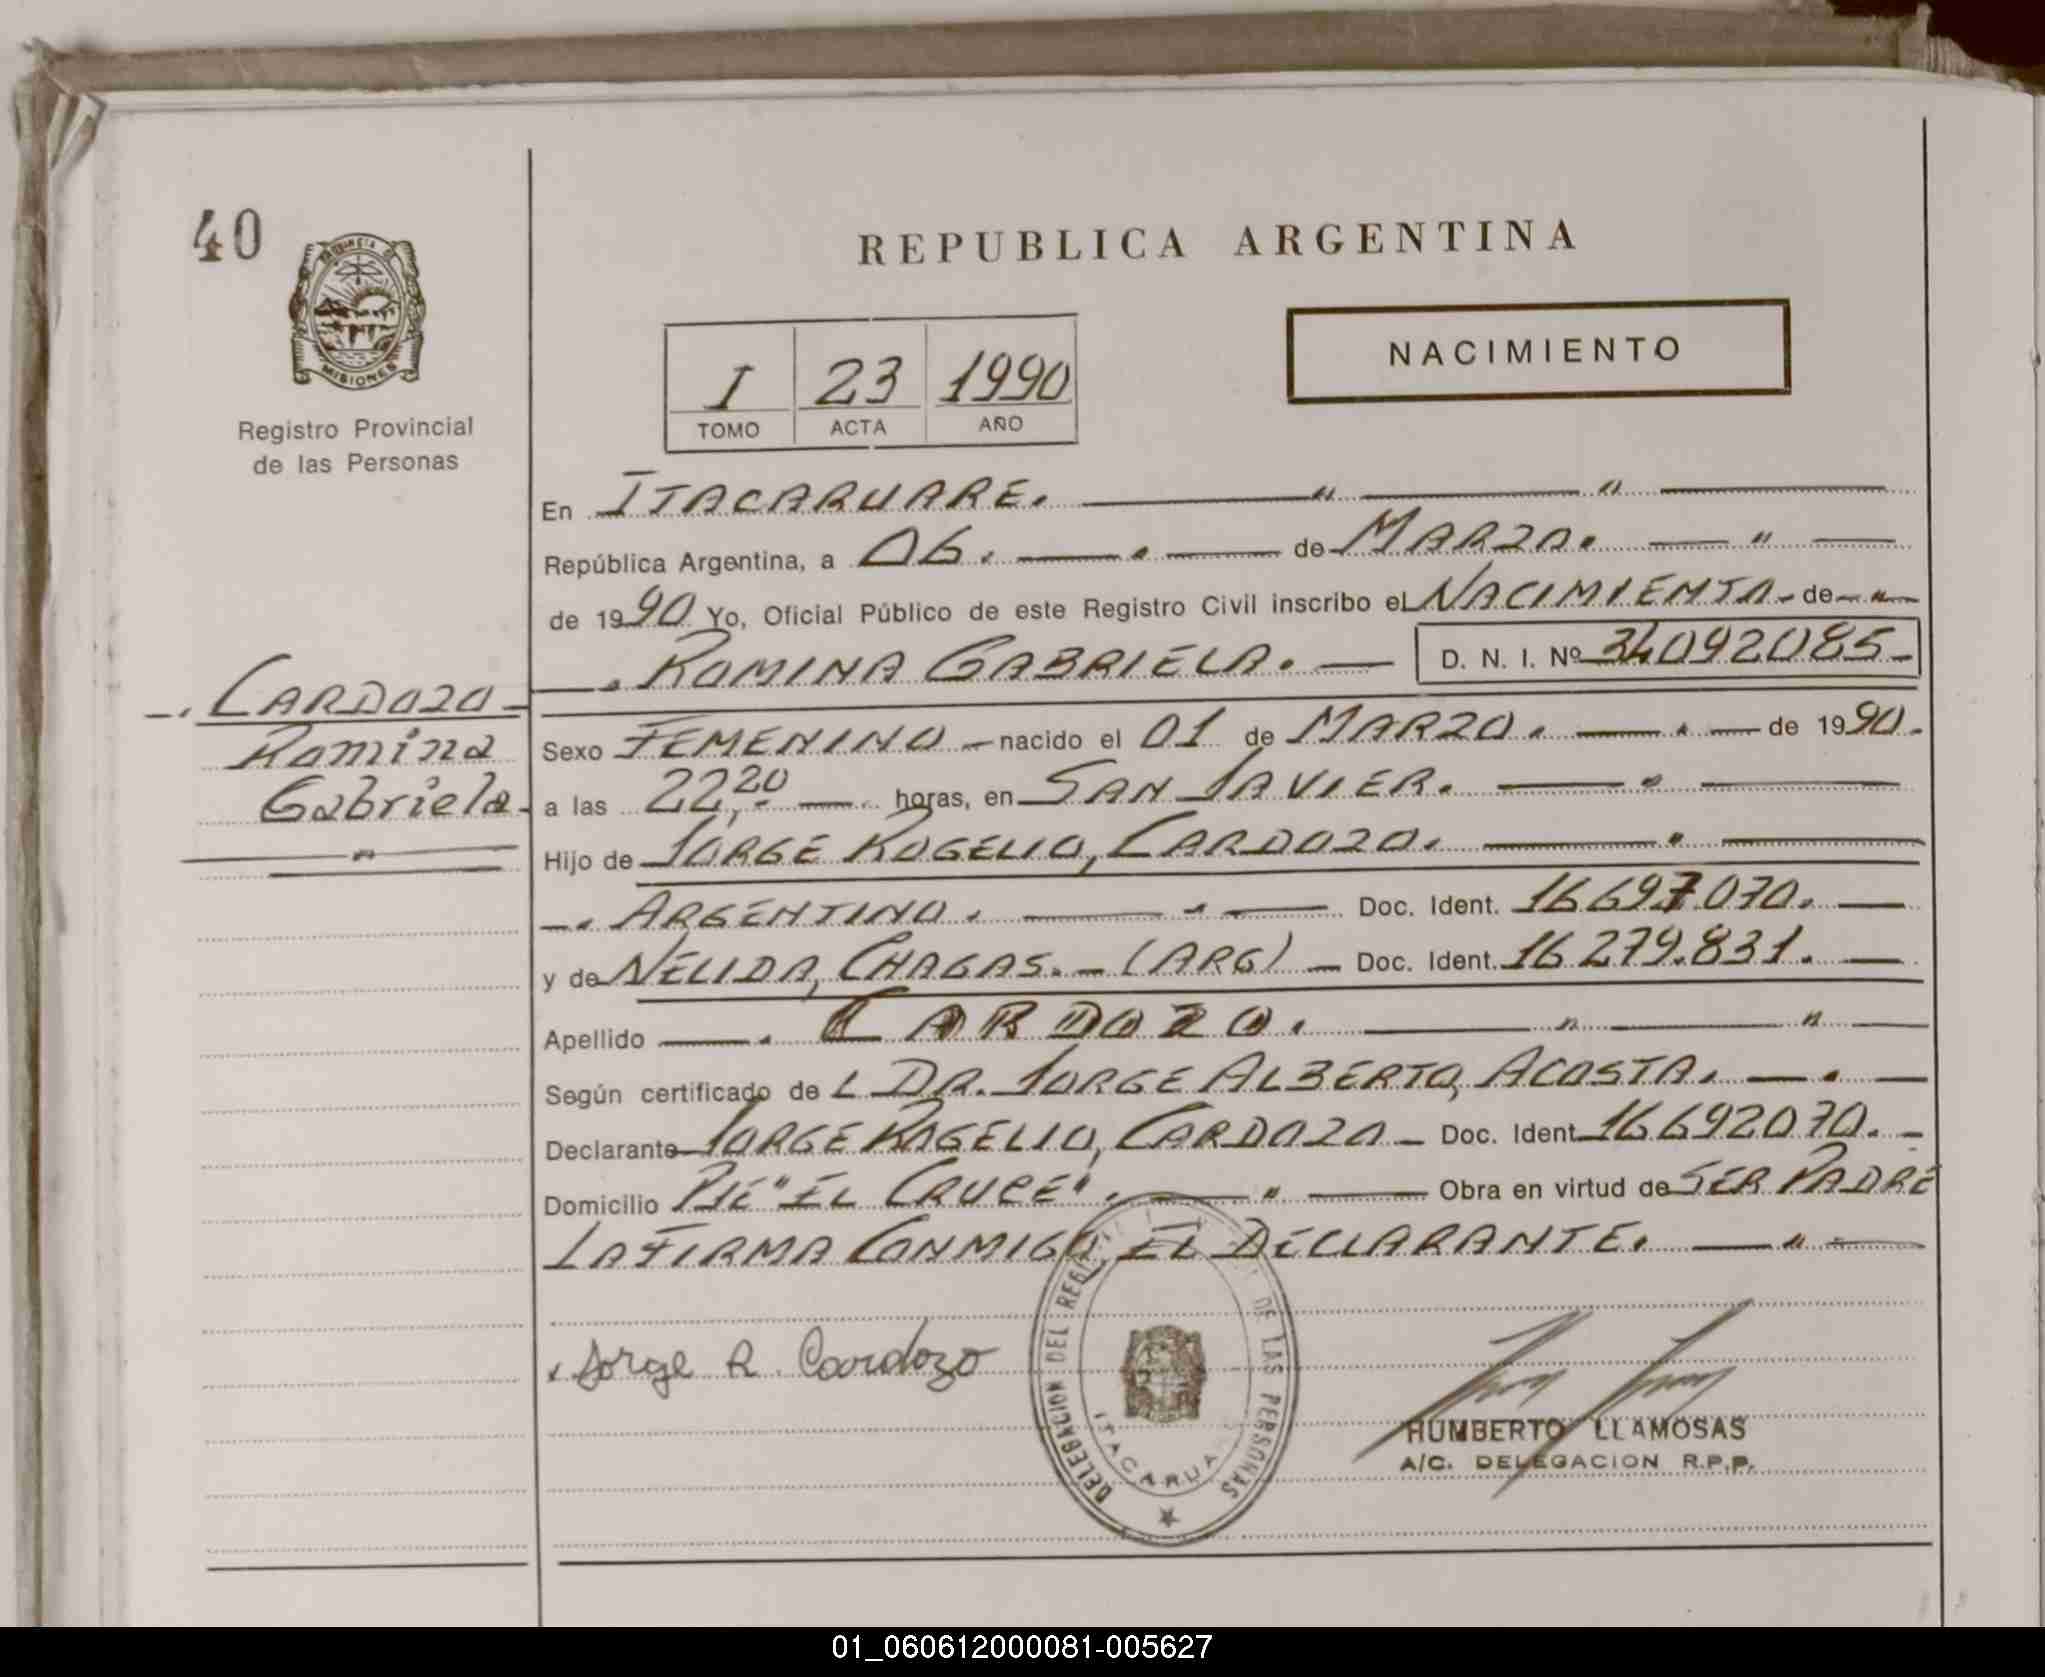 40
REPUBLICA ARGENTINA
PROVINCIA D
MISIONES
Registro Provincial
de las Personas
I 23 1990
TOMO ACTA AÑO
NACIMIENTO
En ITACARUARE. " "
República Argentina, a 06. . de MARZO. "
de 1990 Yo, Oficial Público de este Registro Civil inscribo el NACIMIENTO de "
. ROMINA GABRIELA. D. N. I. Nº 34092085
CARDOZO
Romina
Gabriela
"
Sexo FEMENINO nacido el 01 de MARZO. " de 1990.
a las 22,20 horas, en SAN JAVIER. "
Hijo de JORGE ROGELIO, CARDOZO. "
ARGENTINO. " Doc. Ident. 16697070.
y de NÉLIDA, CHAGAS. (ARG) Doc. Ident. 16279.831.
Apellido . CARDOZO. " "
Según certificado de L DR. JORGE ALBERTO, ACOSTA. .
Declarante JORGE ROGELIO, CARDOZO Doc. Ident. 16692070.
Domicilio PJE "EL CRUCE". " Obra en virtud de SER PADRE
LA FIRMA CONMIGO EL DECLARANTE. "
Jorge R. Cardozo
DELEGACION DEL REGISTRO DE LAS PERSONAS
ITACARUARE
HUMBERTO LLAMOSAS
A/C. DELEGACION R.P.P.
01_060612000081-005627